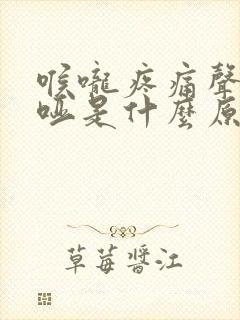 喉嚨疼痛聲
啞是什麼原
草莓醬江